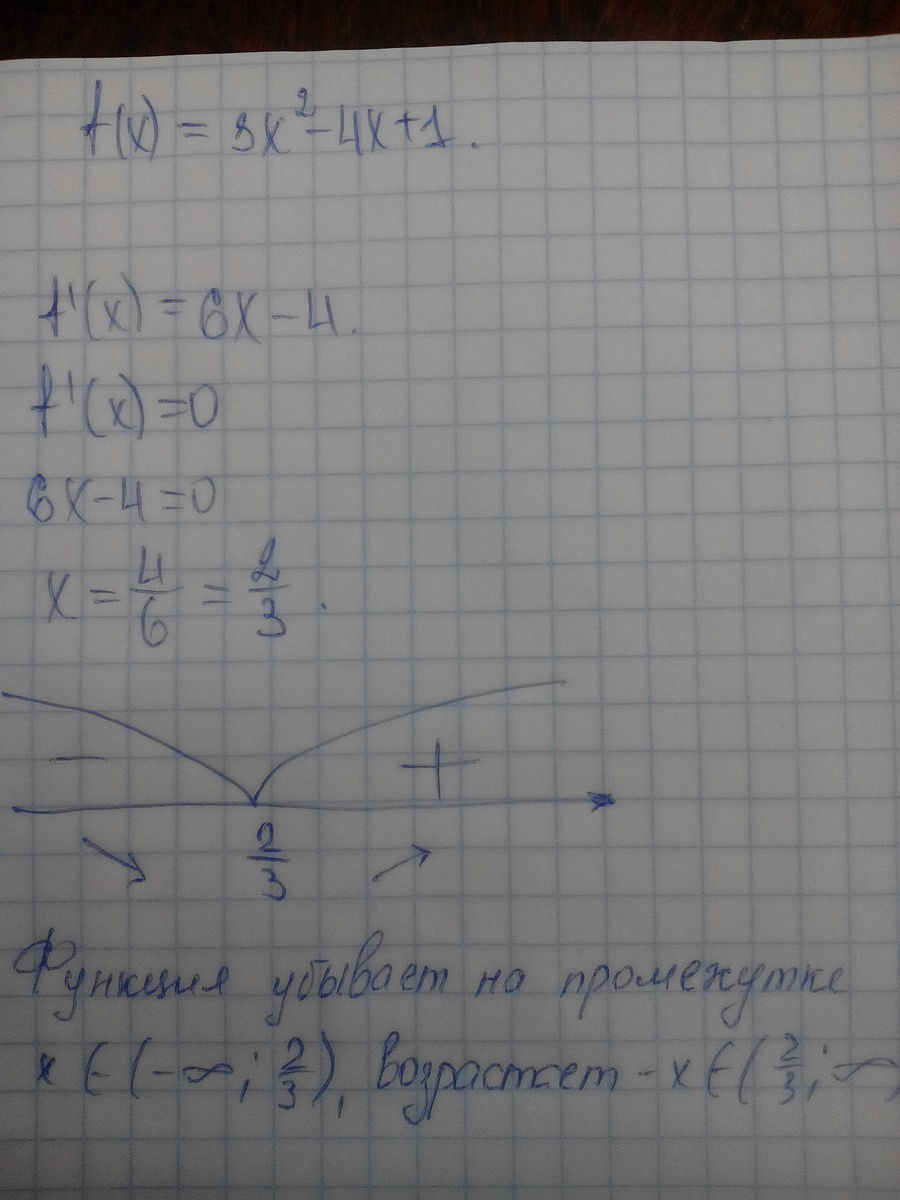 f(x) = 3x²-4x+1.
f'(x) = 6x-4.
f'(x) = 0
6x-4=0
x = 4/6 = 2/3.
- +
2/3
Функция убывает на промежутке
x ∈ (-∞; 2/3), возрастает - x ∈ (2/3; ∞)